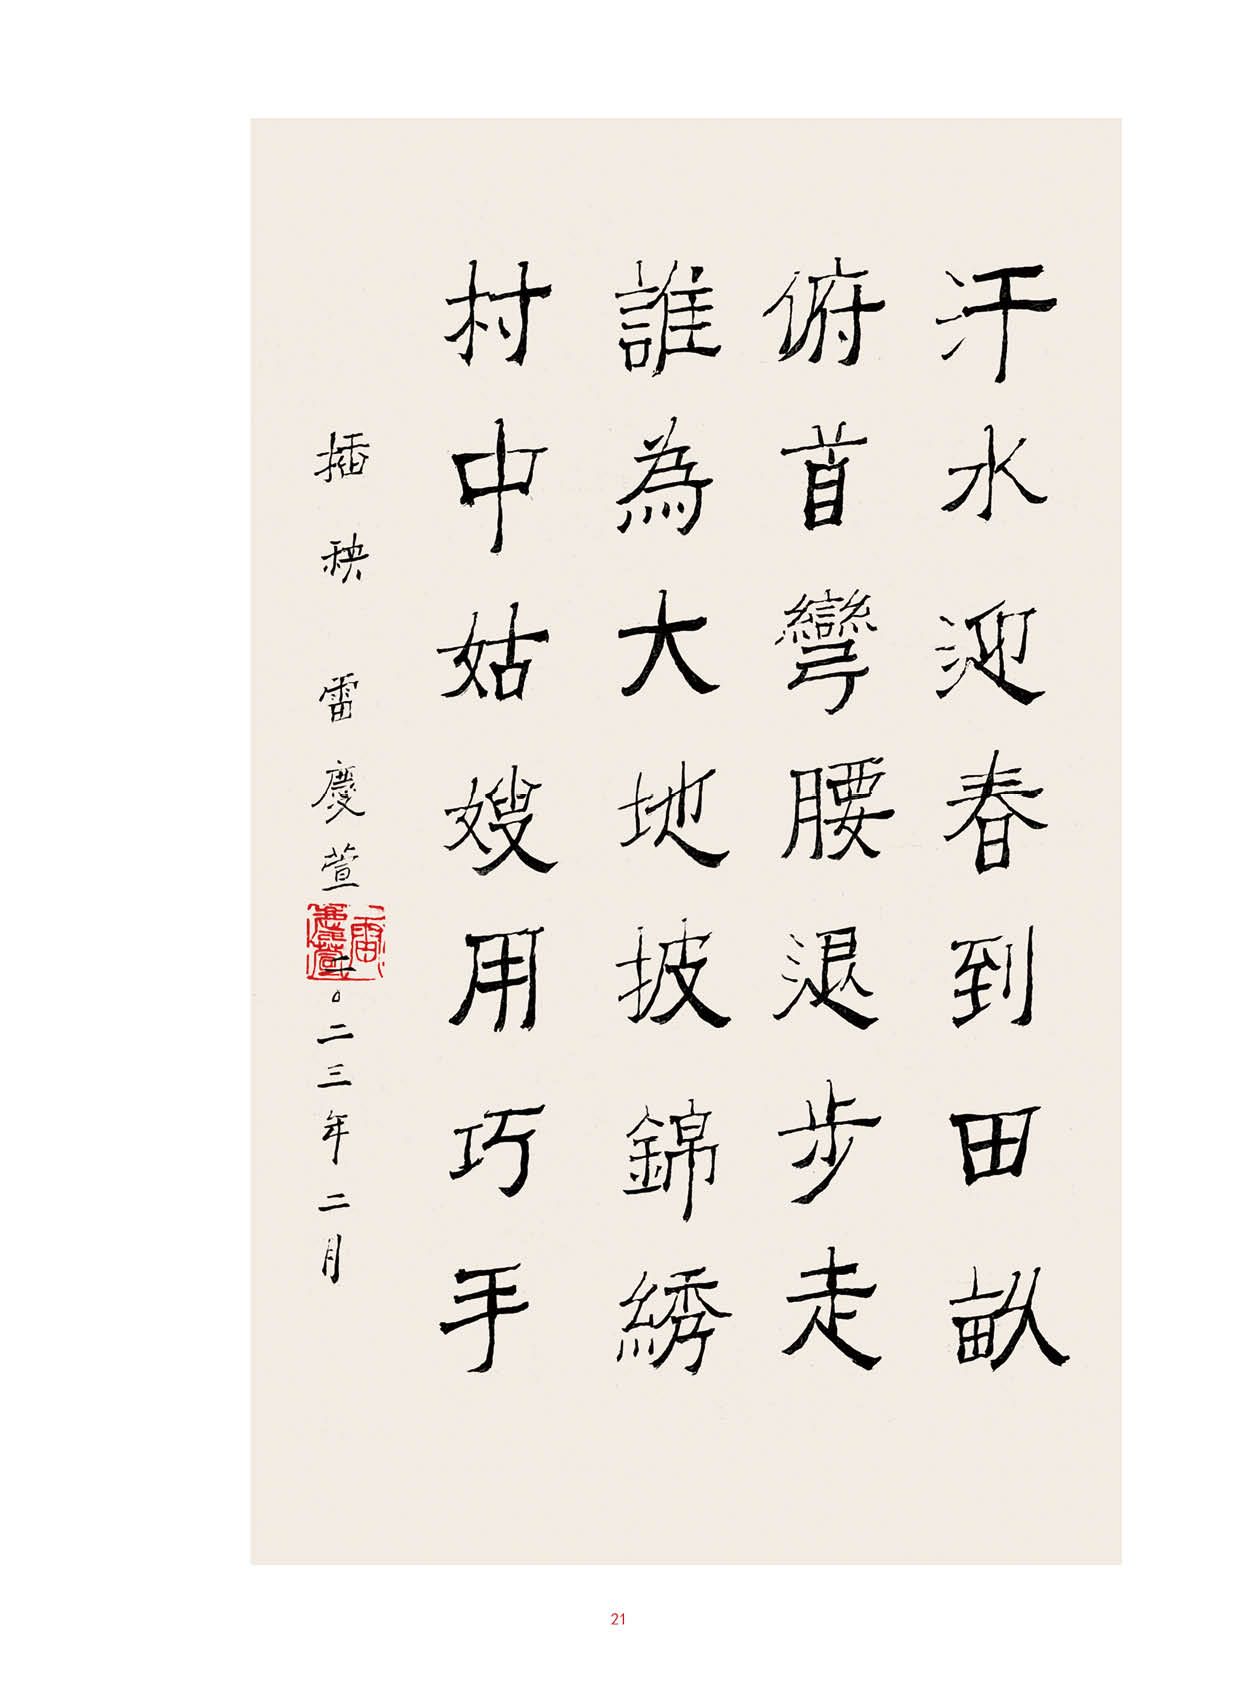 汗水迎春到田畝
俯首彎腰退步走
誰為大地披錦綉
村中姑嫂用巧手
插秧 雷慶萱 二〇二三年二月
雷慶萱
21